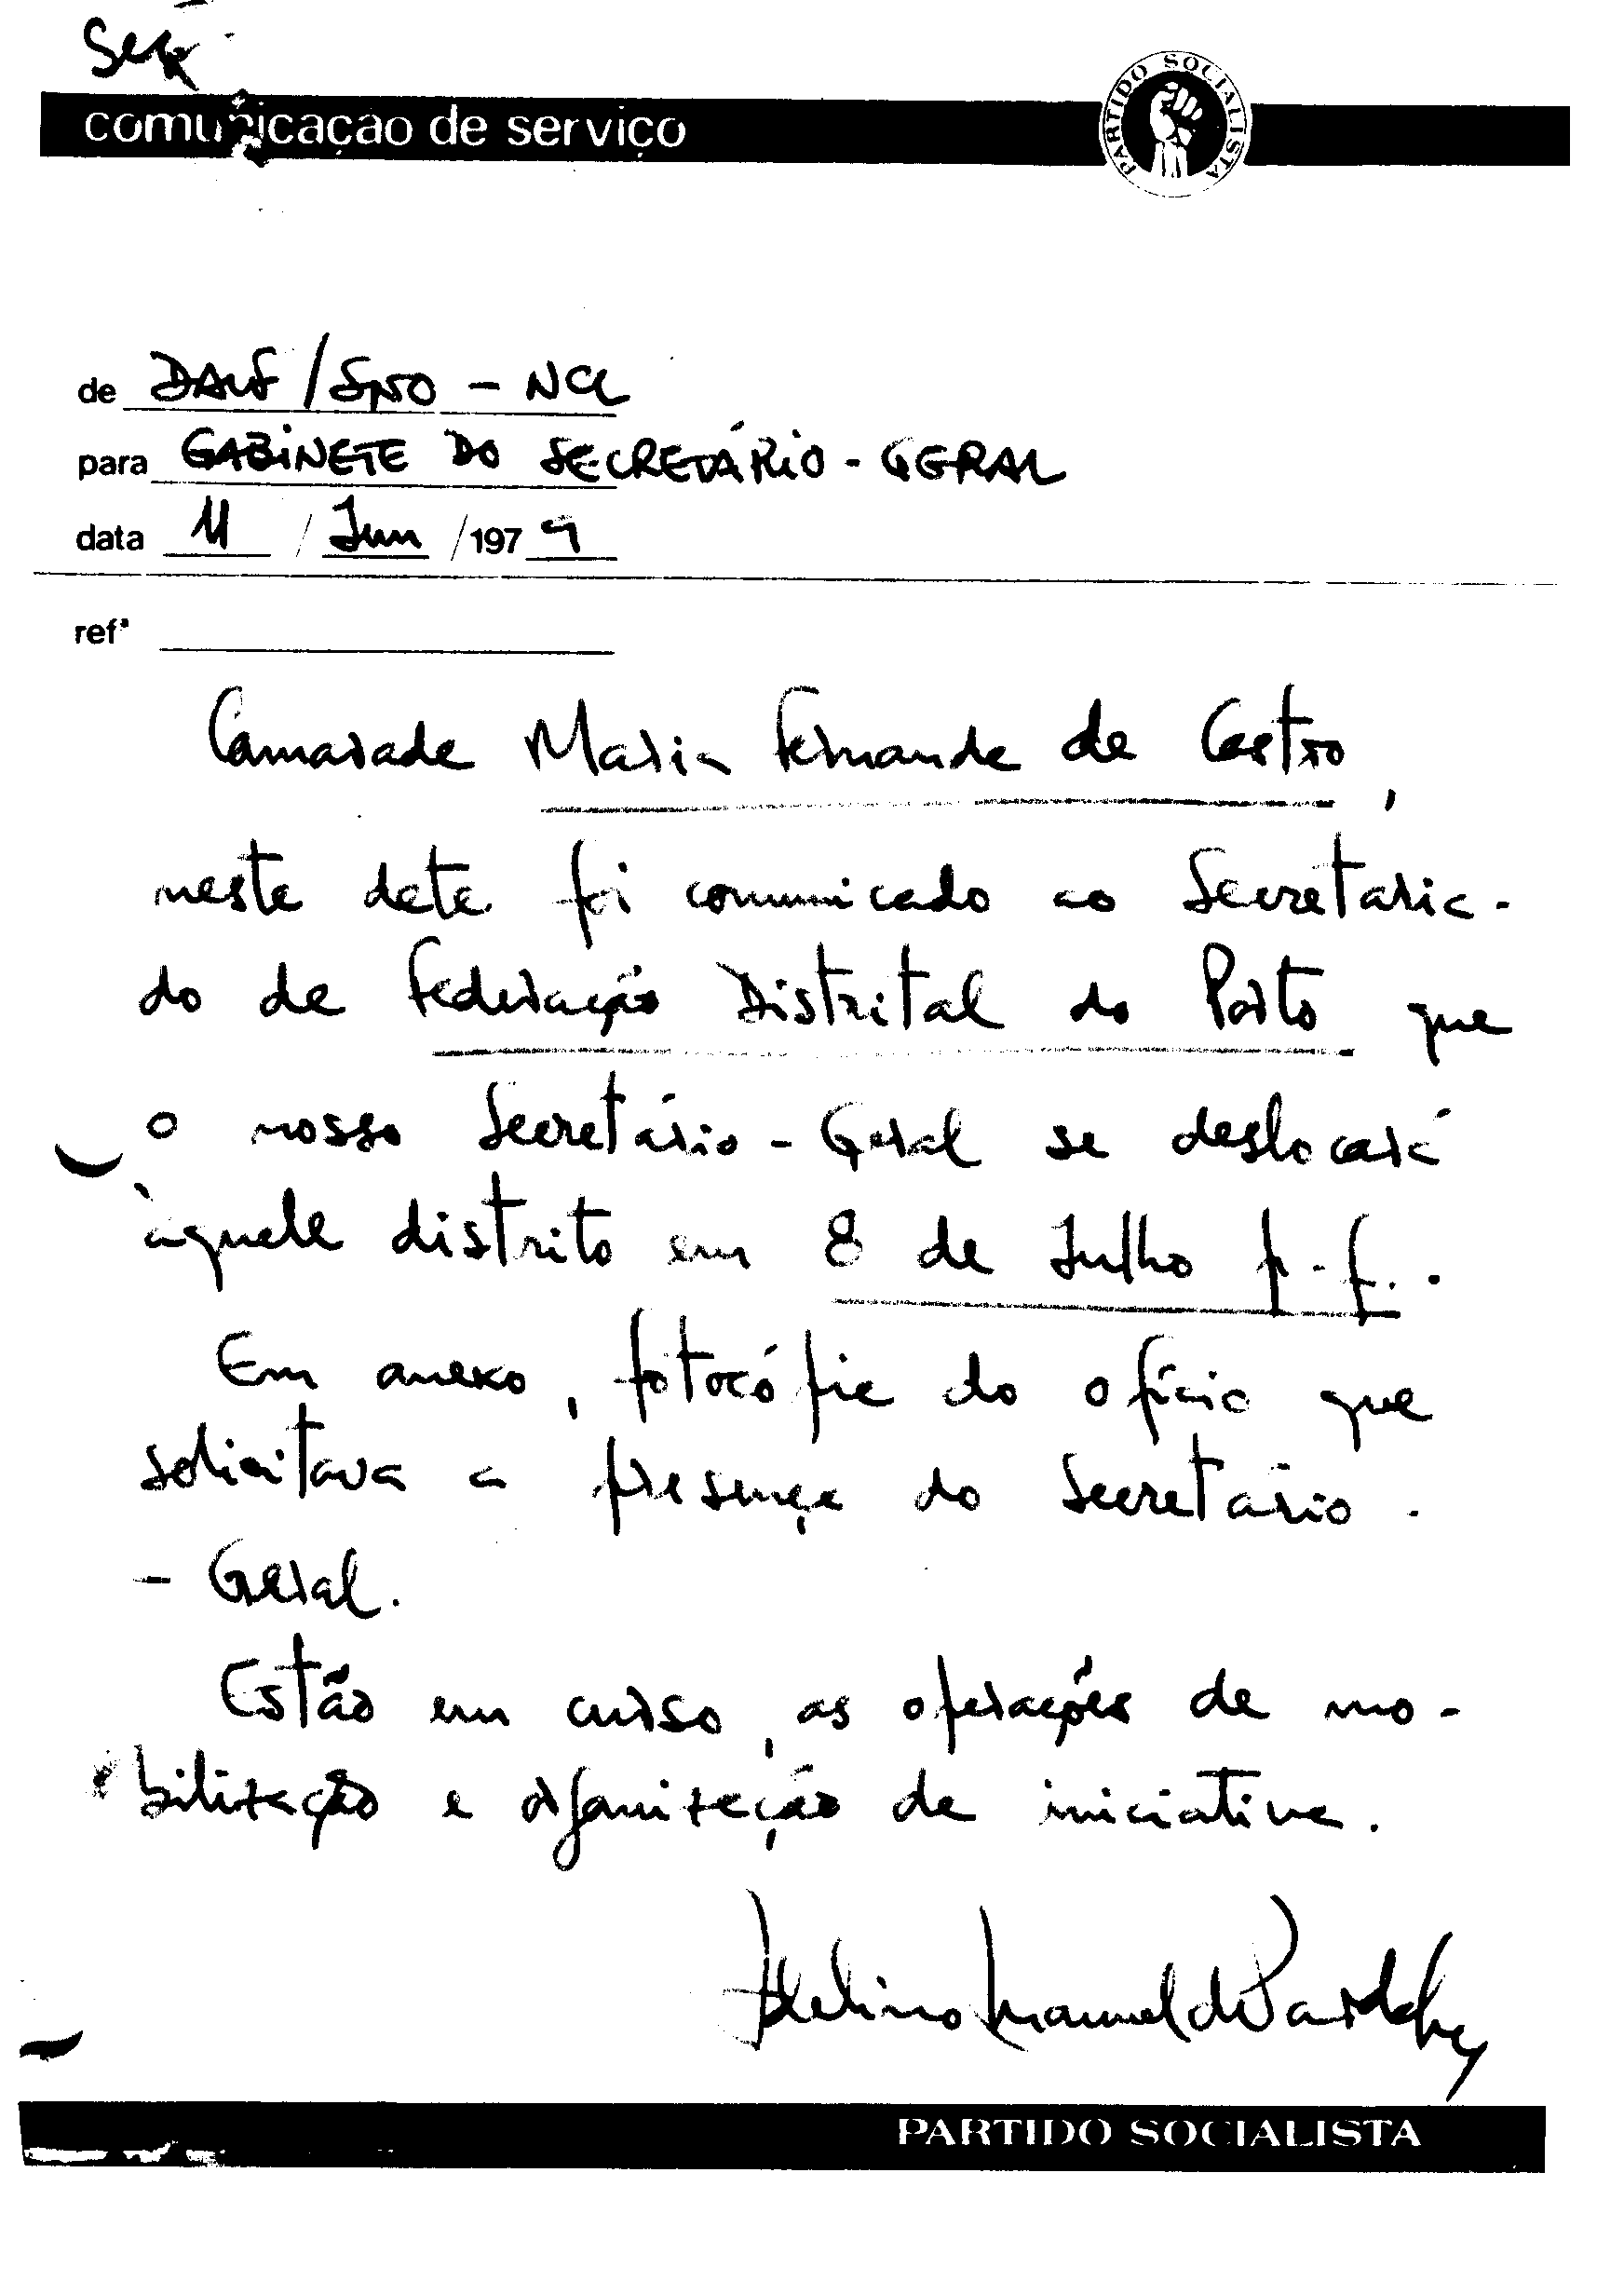 comunicação de serviço
PARTIDO SOCIALISTA
de
para GABINETE DO SECRETÁRIO-GERAL
data 11 / Jun / 1979
refª
Camarada Maria Fernanda de Castro,
nesta data foi comunicado ao Secretaria-
do da Federação Distrital do Porto que
o nosso Secretário-Geral se deslocará
àquele distrito em 8 de Julho p.f..
Em anexo, fotocópia do ofício que
solicitava a presença do Secretário-
-Geral.
Estão em curso, as operações de mo-
bilização e organização da iniciativa.
PARTIDO SOCIALISTA